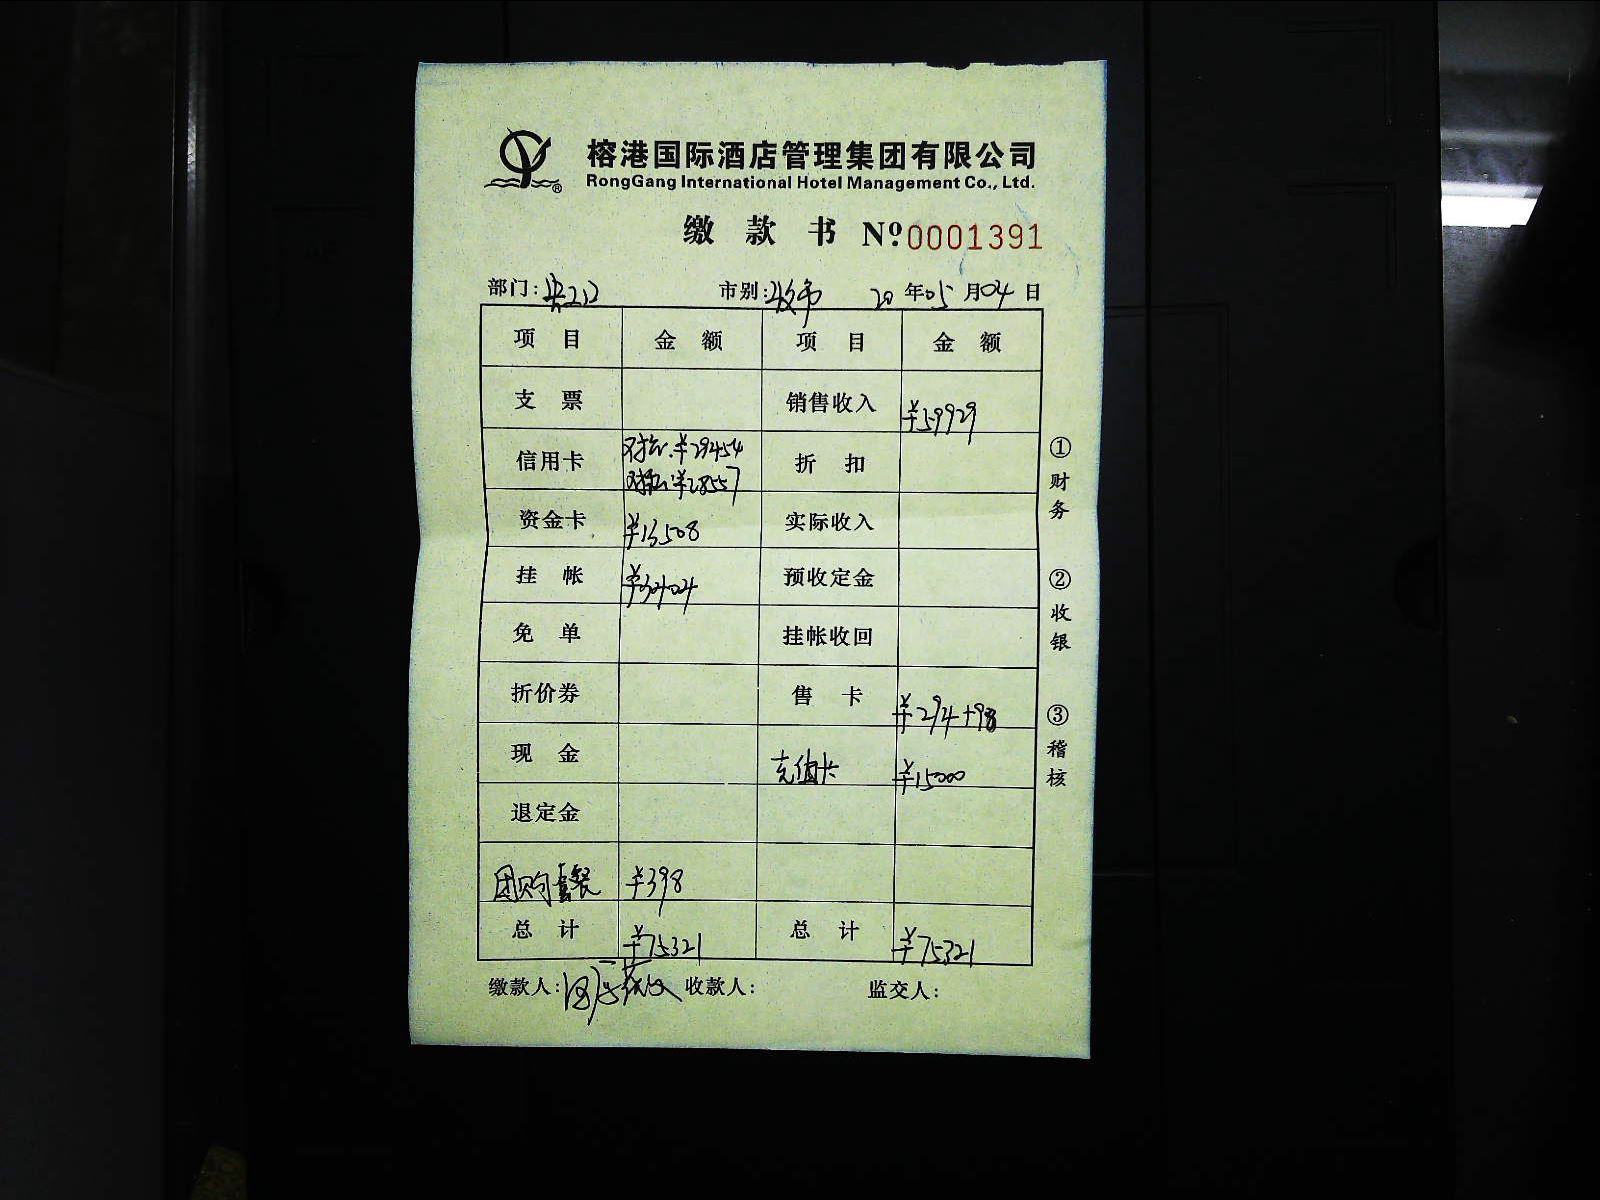 榕港国际酒店管理集团有限公司
RongGang International Hotel Management Co., Ltd.
缴款书 Nº 0001391
部门: 市别: 20年05月04日
项目 金额 项目 金额
支票 销售收入 ¥59929
信用卡 ¥29454 折扣
¥28557
资金卡 ¥13508 实际收入
挂帐 ¥3404 预收定金
免单 挂帐收回
折价券 售卡 ¥294+98
现金 充值卡 ¥15000
退定金
团购套餐 ¥398
总计 ¥75321 总计 ¥75321
缴款人: 收款人: 监交人:
①财务
②收银
③稽核